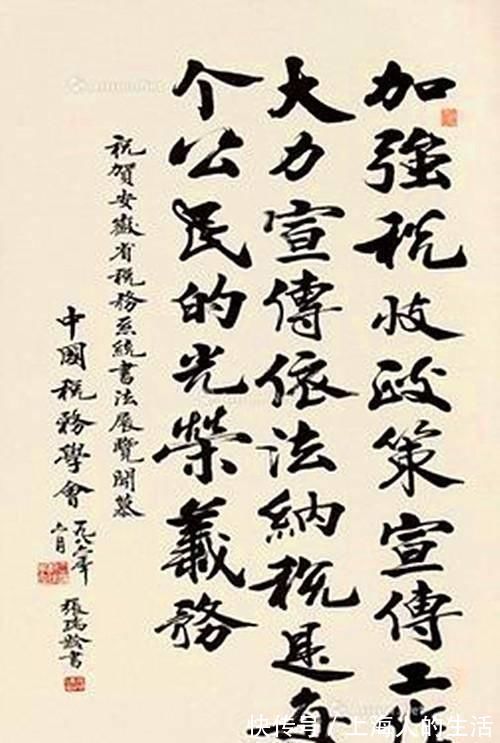 加強税收政策宣傳工作
大力宣傳依法納税是每
个公民的光榮義務
祝賀安徽省税務系統書法展覽開幕
中國税務學會
一九八六年
六月
張瑞齡書
快传号 / 上海人的生活